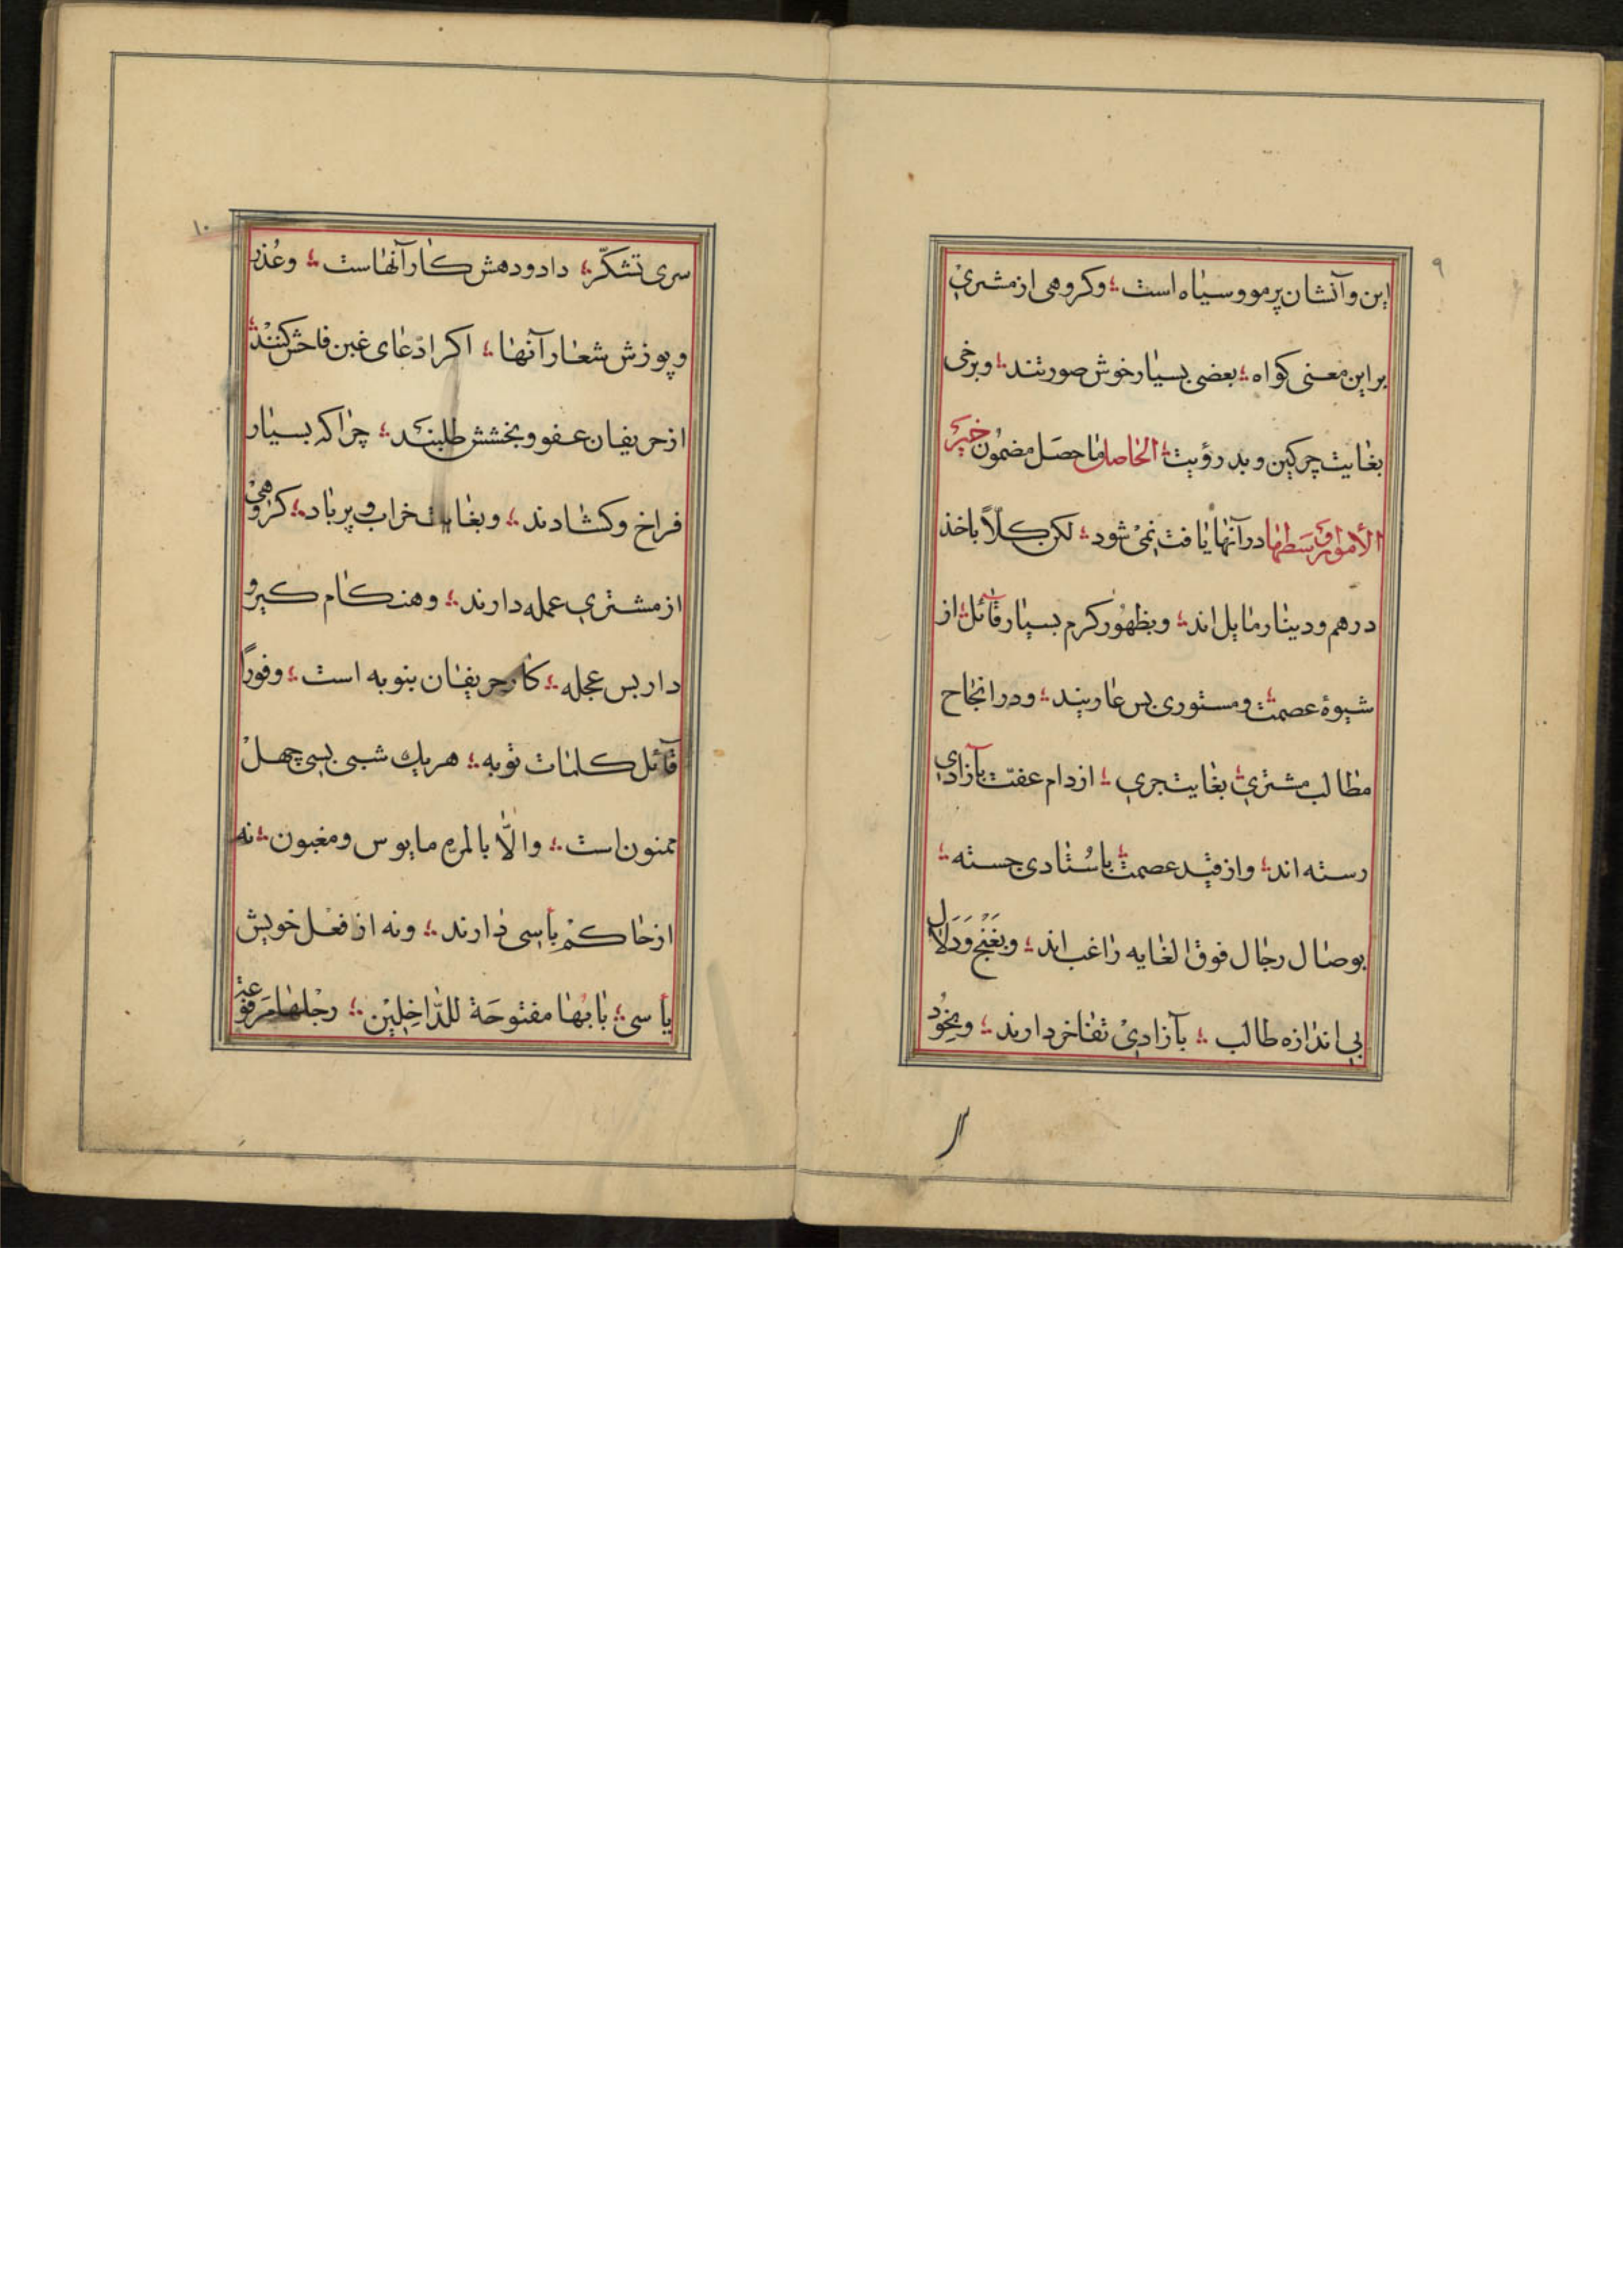 ۹
این و آنشان پرمو و سیاه است ؛ و کروهی از مشتری
بر این معنی کواه ؛ بعضی بسیار خوش صورتند ؛ و برخی
بغایت چرکین و بد رؤیت ؛ الحاصل ما حصل مضمون خیر
الأمور اوسطها در آنها یافت نمی شود ؛ لکن کلاً باخذ
درهم و دینار مایل اند ؛ و بظهور کرم بسیار قائل ؛ از
شیوهٔ عصمت و مستوری بس عاریند ؛ و در انجاح
مطالب مشتری بغایت جری ؛ از دام عفت بآزادی
رسته اند ؛ و از قید عصمت باستادی جسته ؛
بوصال رجال فوق الغایه راغب اند ؛ و بغنج و دلال
بی اندازه طالب ؛ بآزادی تفاخر دارند ؛ و بخود
۱۰
سری تشکر ؛ داد و دهش کار آنهاست ؛ و عذر
و پوزش شعار آنها ؛ اکر ادعای غبن فاحش کنند ؛
از حریفان عفو و بخشش طلبند ؛ چرا که بسیار
فراخ و کشادند ؛ و بغایت خراب و پر باد ؛ کروهی
از مشتری عمله دارند ؛ و هنکام کیر و
دار بس عجله ؛ کار حریفان بنوبه است ؛ و فوراً
قائل کلمات توبه ؛ هر یك شبی بسی چهل
ممنون است ؛ و الّا بالمره مایوس و مغبون ؛ نه
از حاکم بأسی دارند ؛ و نه از فعل خویش
یأسی ؛ بابُها مفتوحَة للدّاخِلِیْن ؛ رجْلها مَرفوعة